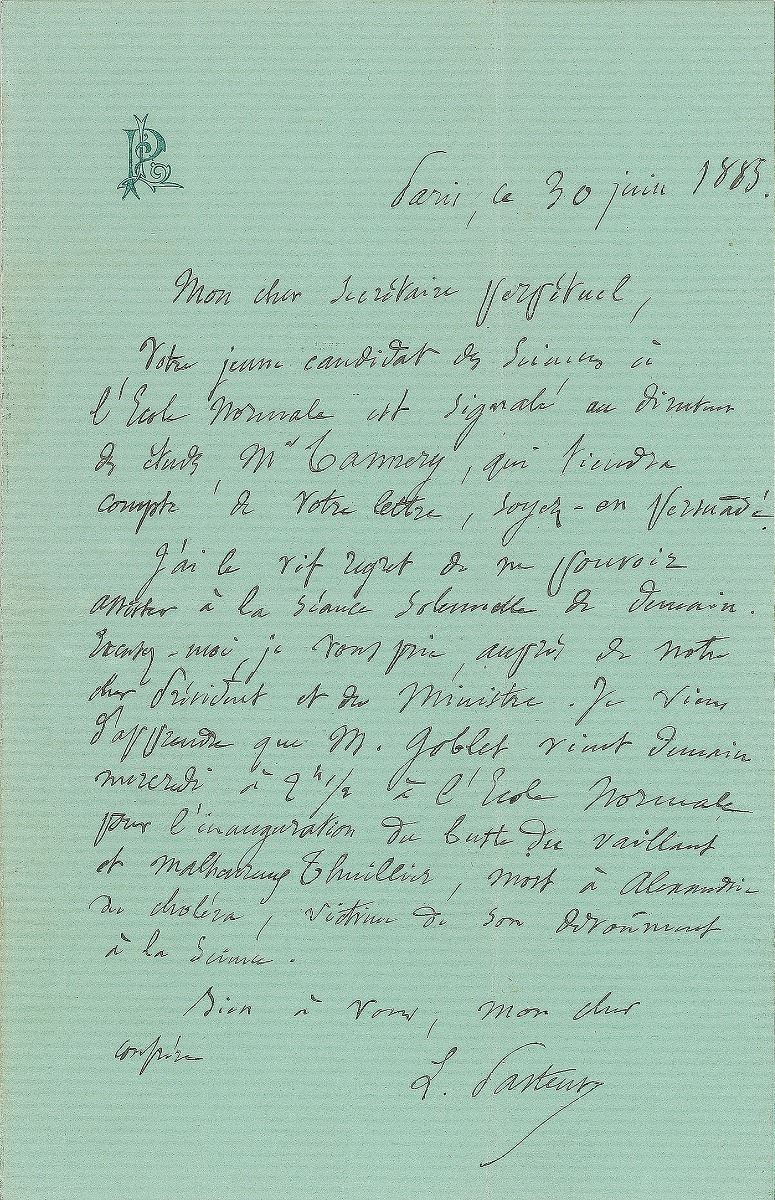 LP
Paris, ce 30 juin 1885.
Mon cher Secrétaire perpétuel,
Votre jeune candidat des Sciences à
l'Ecole Normale est signalé au directeur
des études, Mr Tannery, qui tiendra
compte de votre lettre, soyez-en persuadé.
J'ai le vif regret de ne pouvoir
assister à la séance solennelle de demain.
Excusez-moi, je vous prie, auprès de notre
cher Président et du Ministre. Je viens
d'apprendre que M. Goblet vient demain
mercredi à 2h 1/2 à l'Ecole Normale
pour l'inauguration du buste du vaillant
et malheureux Thuillier, mort à Alexandrie
du choléra, victime de son dévoûment
à la Science.
Bien à vous, mon cher
confrère
L. Pasteur